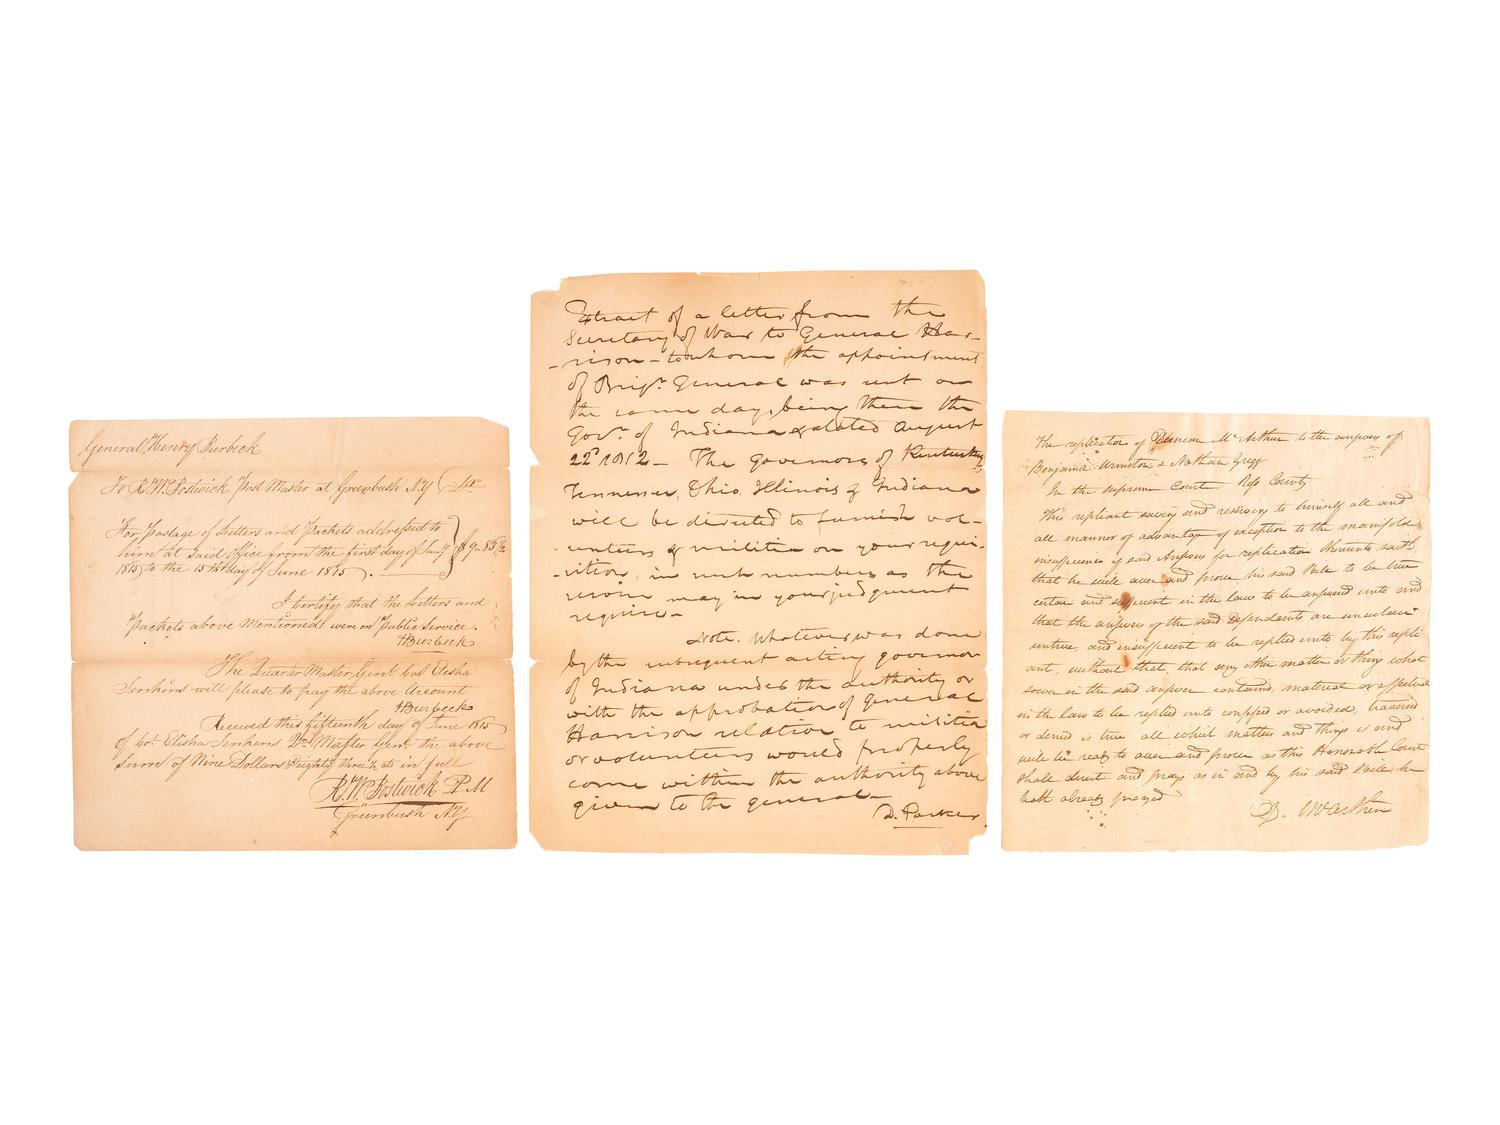 General Henry Burbeck
To R. W. Postwick Post Master at Greenbush N.Y Dr
For Postage of Letters and Packets addressed to
him at said Office from the first day of Jany
1815 to the 15th day of June 1815. $9.83½
I Certify that the Letters and
Packets above Mentioned were on Public Service.
H Burbeck
The Quarter Master Genl. Col Elisha
Jenkins will please to pay the above Account
H Burbeck
Received this fifteenth day of June 1815
of Col. Elisha Jenkins Qr. Master Genl. the above
Sum of Nine Dollars Eighty three ½ cts in full
R. W. Postwick P.M
Greenbush N.Y
Extract of a letter from the
Secretary of War to General Har-
-rison - to whom the appointment
of Brigr. General was sent on
the same day, being then the
Govr. of Indiana & dated August
22d 1812 - The governors of Kentucky
Tennessee, Ohio, Illinois & Indiana
will be directed to furnish vol-
-unteers & militia on your requi-
-sition, in such numbers as the
service may in your judgment
require -
Note. Whatever was done
by the subsequent acting governor
of Indiana under the authority or
with the approbation of General
Harrison relation to militia
or volunteers would properly
come within the authority above
given to the general -
D. Parker.
The replication of Duncan McArthur to the answers of
Benjamin Urmston & Nathan Gregg
In the supreme Court Ross County
This repliant saving and reserving to himself all and
all manner of advantage of exception to the manifold
insufficiencies of said Answers for replication thereunto saith
that he will aver and prove his said Bill to be true
certain and sufficient in the law to be answered unto and
that the answers of the said Defendants are uncertain
untrue, and insufficient to be replied unto by this repli
ant, without that that any other matter or thing what
soever in the said answer contained, material or effectual
in the law to be replied unto confessed or avoided, traversed
or denied is true all which matters and things is and
will be ready to aver and prove as this Honorable Court
shall direct and prays as in and by his said Bill he
hath already prayed
D. McArthur